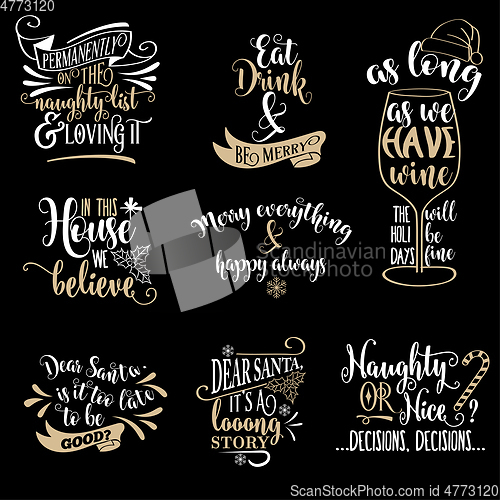 id 4773120
PERMANENTLY
ON THE
naughty list
& LOVING IT
Eat
Drink
&
BE MERRY
as long
as we
HAVE
wine
THE
HOLI
DAYS
will
be
fine
IN THIS
House
WE
believe
Merry everything
&
happy always
Scandinavian
stockphoto
Dear Santa.
is it too late
to be
GOOD?
DEAR SANTA,
IT'S A
looong
STORY
Naughty
OR
Nice?
...DECISIONS, DECISIONS...
© Scandinavian Stockphoto
id 4773120